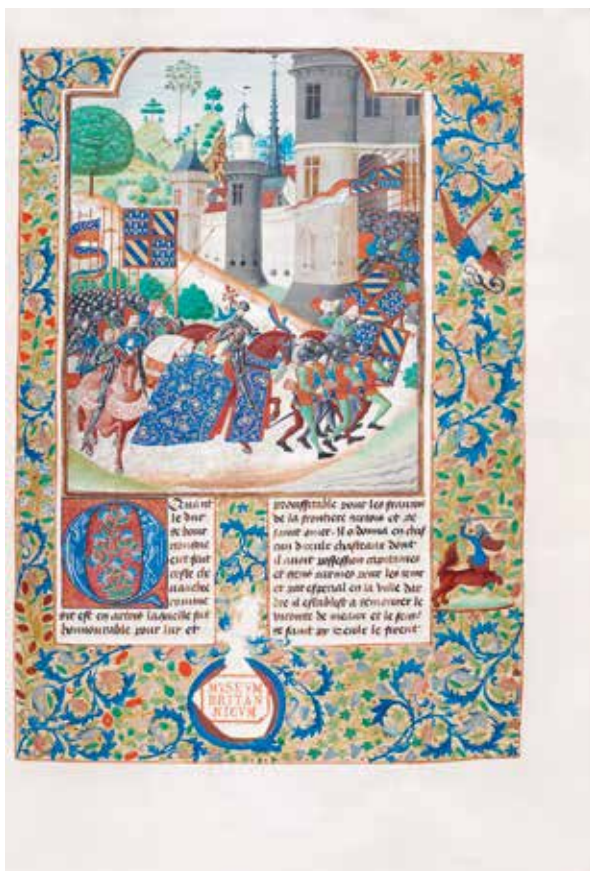 Quant
le duc
de bour
eut fait
ceste che
uauchie
comme
dit est en artois laquelle fut
honnourable pour luy et
prouffitable pour les francois
de la frontiere dartois et de
saint omer. Il donna en chas
cun dicculx chasteaux dont
il auoit possession capitaines
et gens darmes pour les
et par especial en la ville dar
dre il establist a demourer le
viconte de meaulx et le
MVSEVM
BRITAN
NICVM